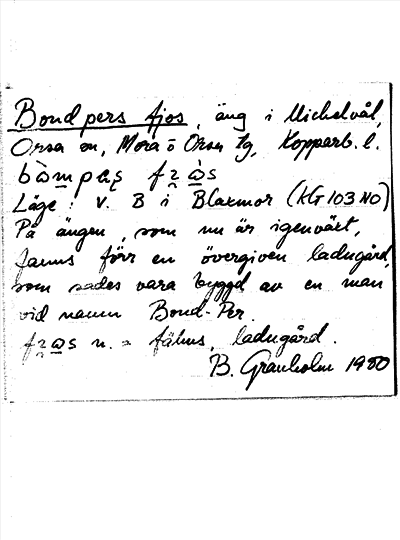 Bond pers fjos, äng i Michelvål,
Orsa sn, Mora o Orsa tg, Kopparb. l.
Läge: v. B i Blaxmor (KG 103 NO)
På ängen, som nu är igenväxt,
fanns förr en övergiven ladugård,
som sades vara byggd av en man
vid namn Bond-Per.
n. = fähus, ladugård.
B. Granholm 1980